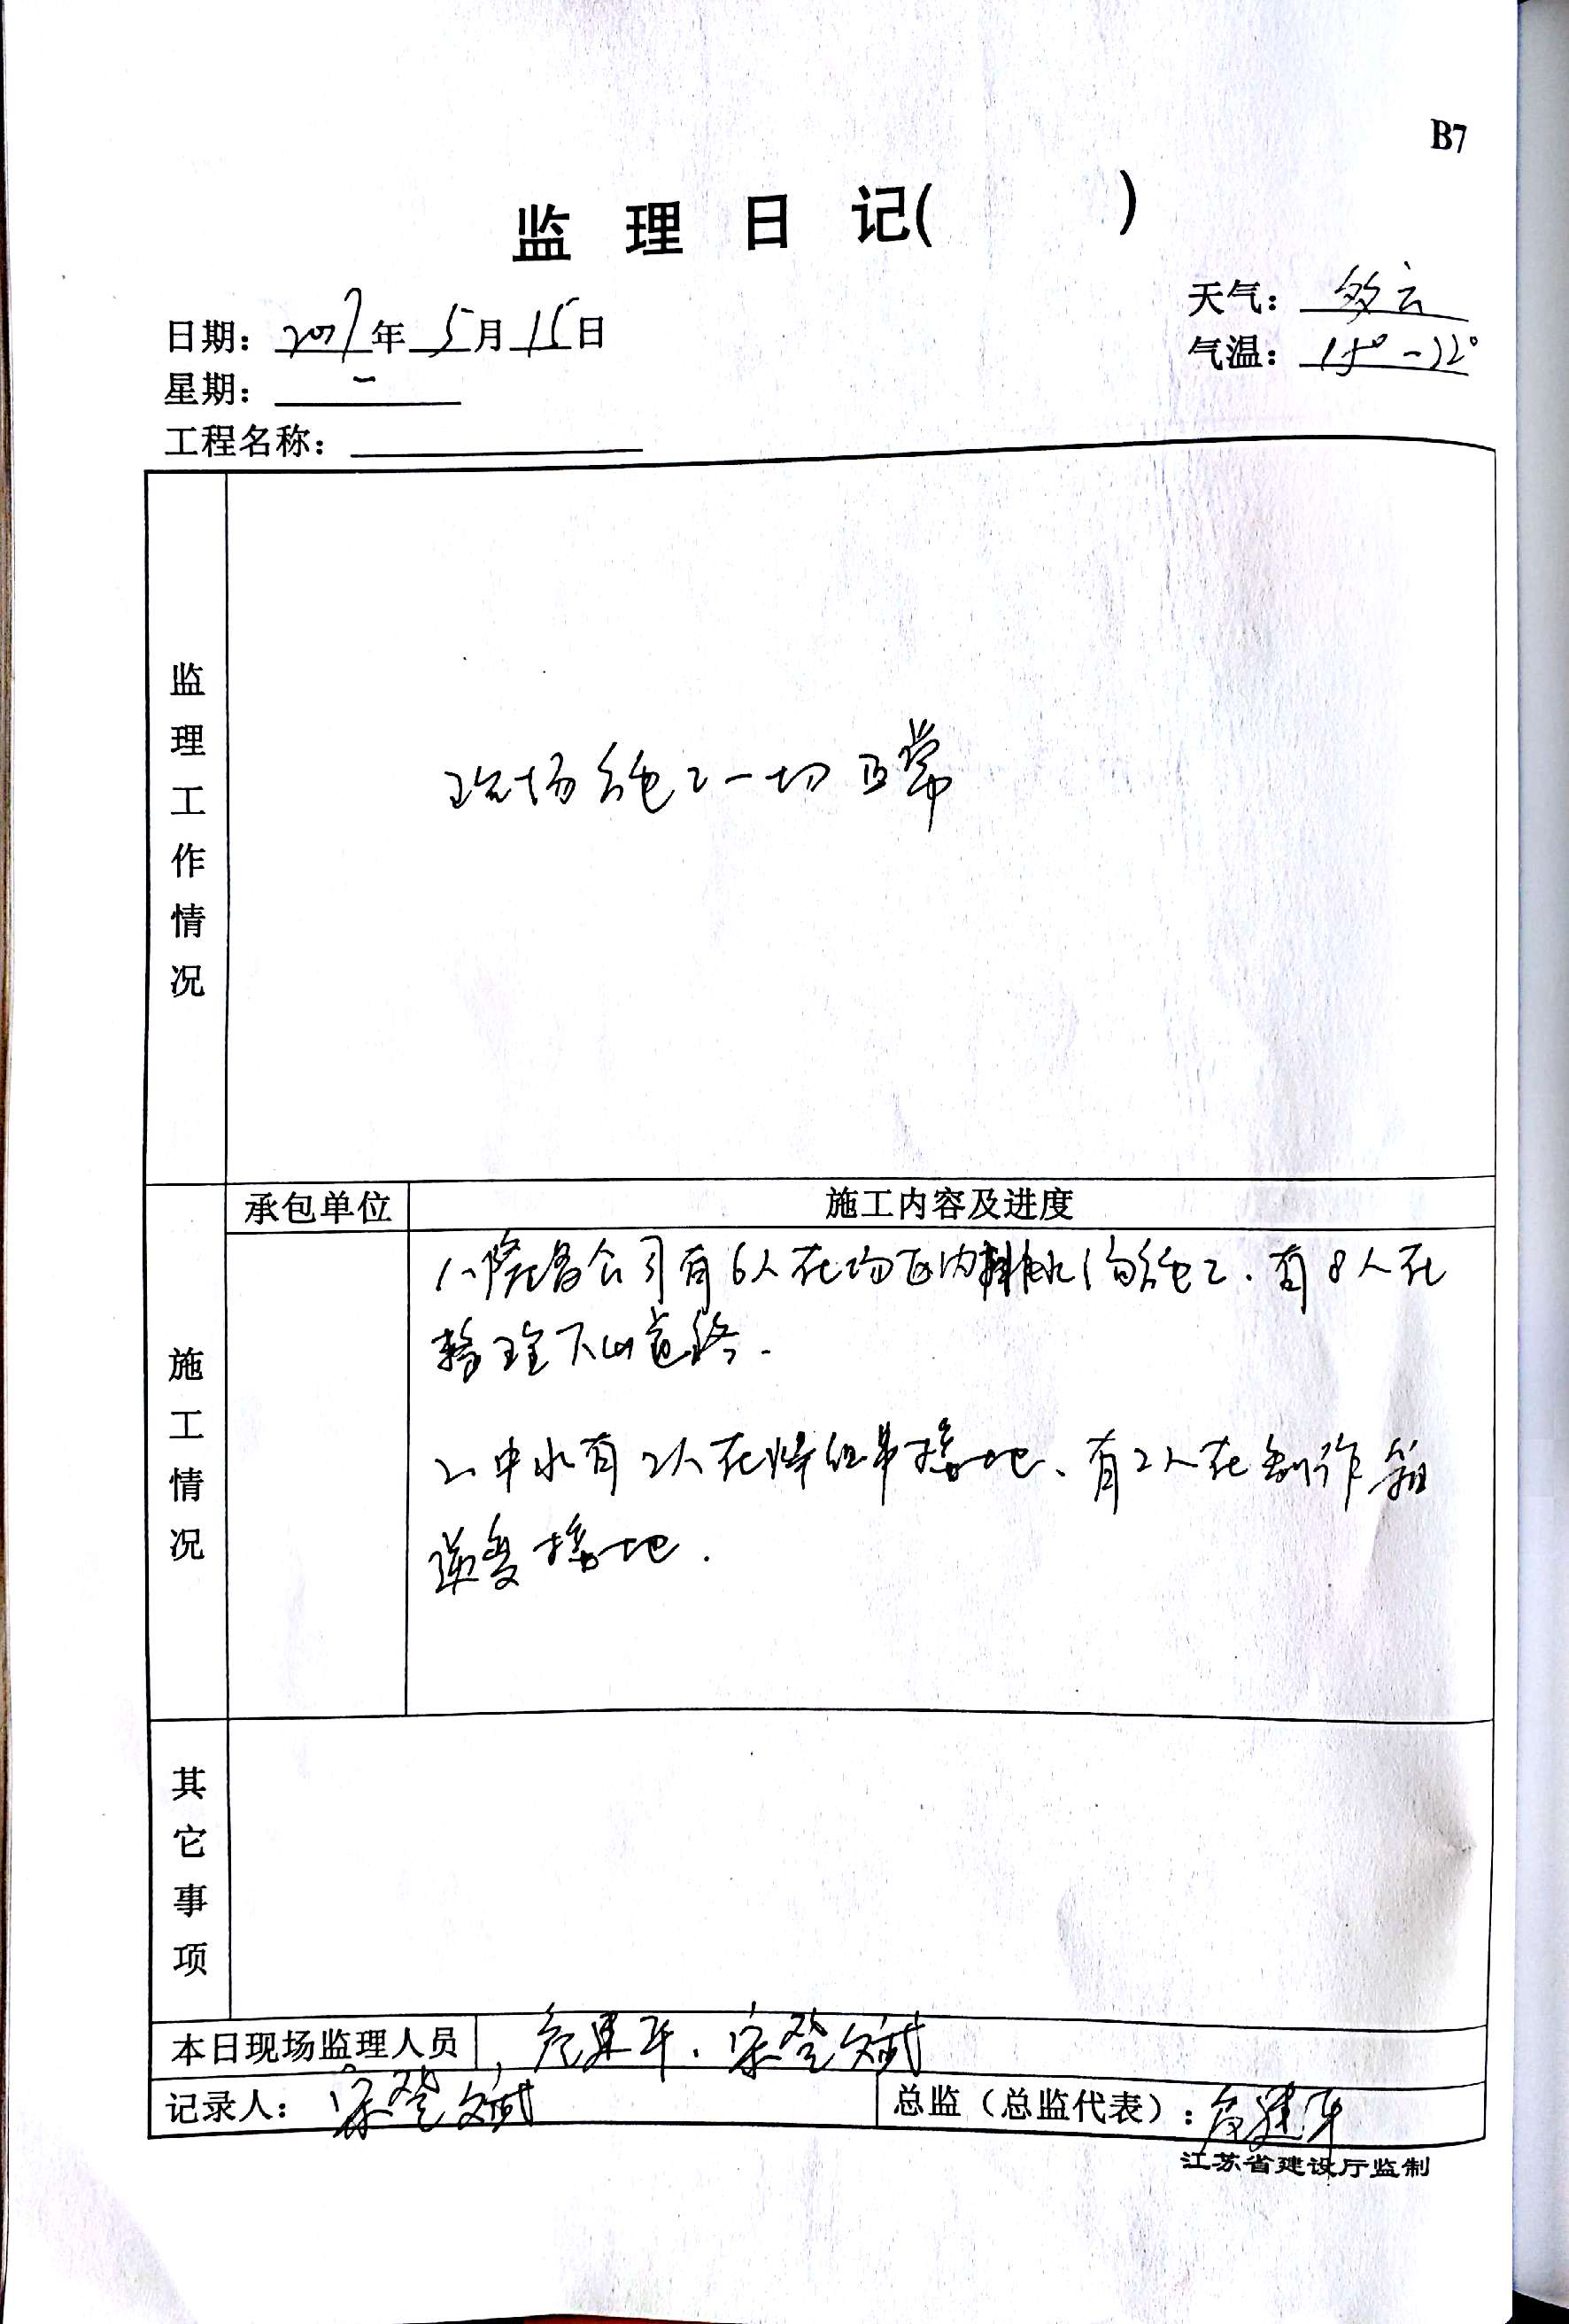 B7
监 理 日 记( )
日期: 2017年 5月 15日
天气: 多云
星期: 一
气温: 15°-22°
工程名称:
监理工作情况
现场施工一切正常
承包单位
施工内容及进度
施工情况
1、隆基公司有6人在场区内排水沟施工.有8人在
整理下山道路.
2、中水有2人在焊组串接地、有2人在制作箱
逆变接地.
其它事项
本日现场监理人员
记录人: 宋登文武
总监(总监代表):
江苏省建设厅监制